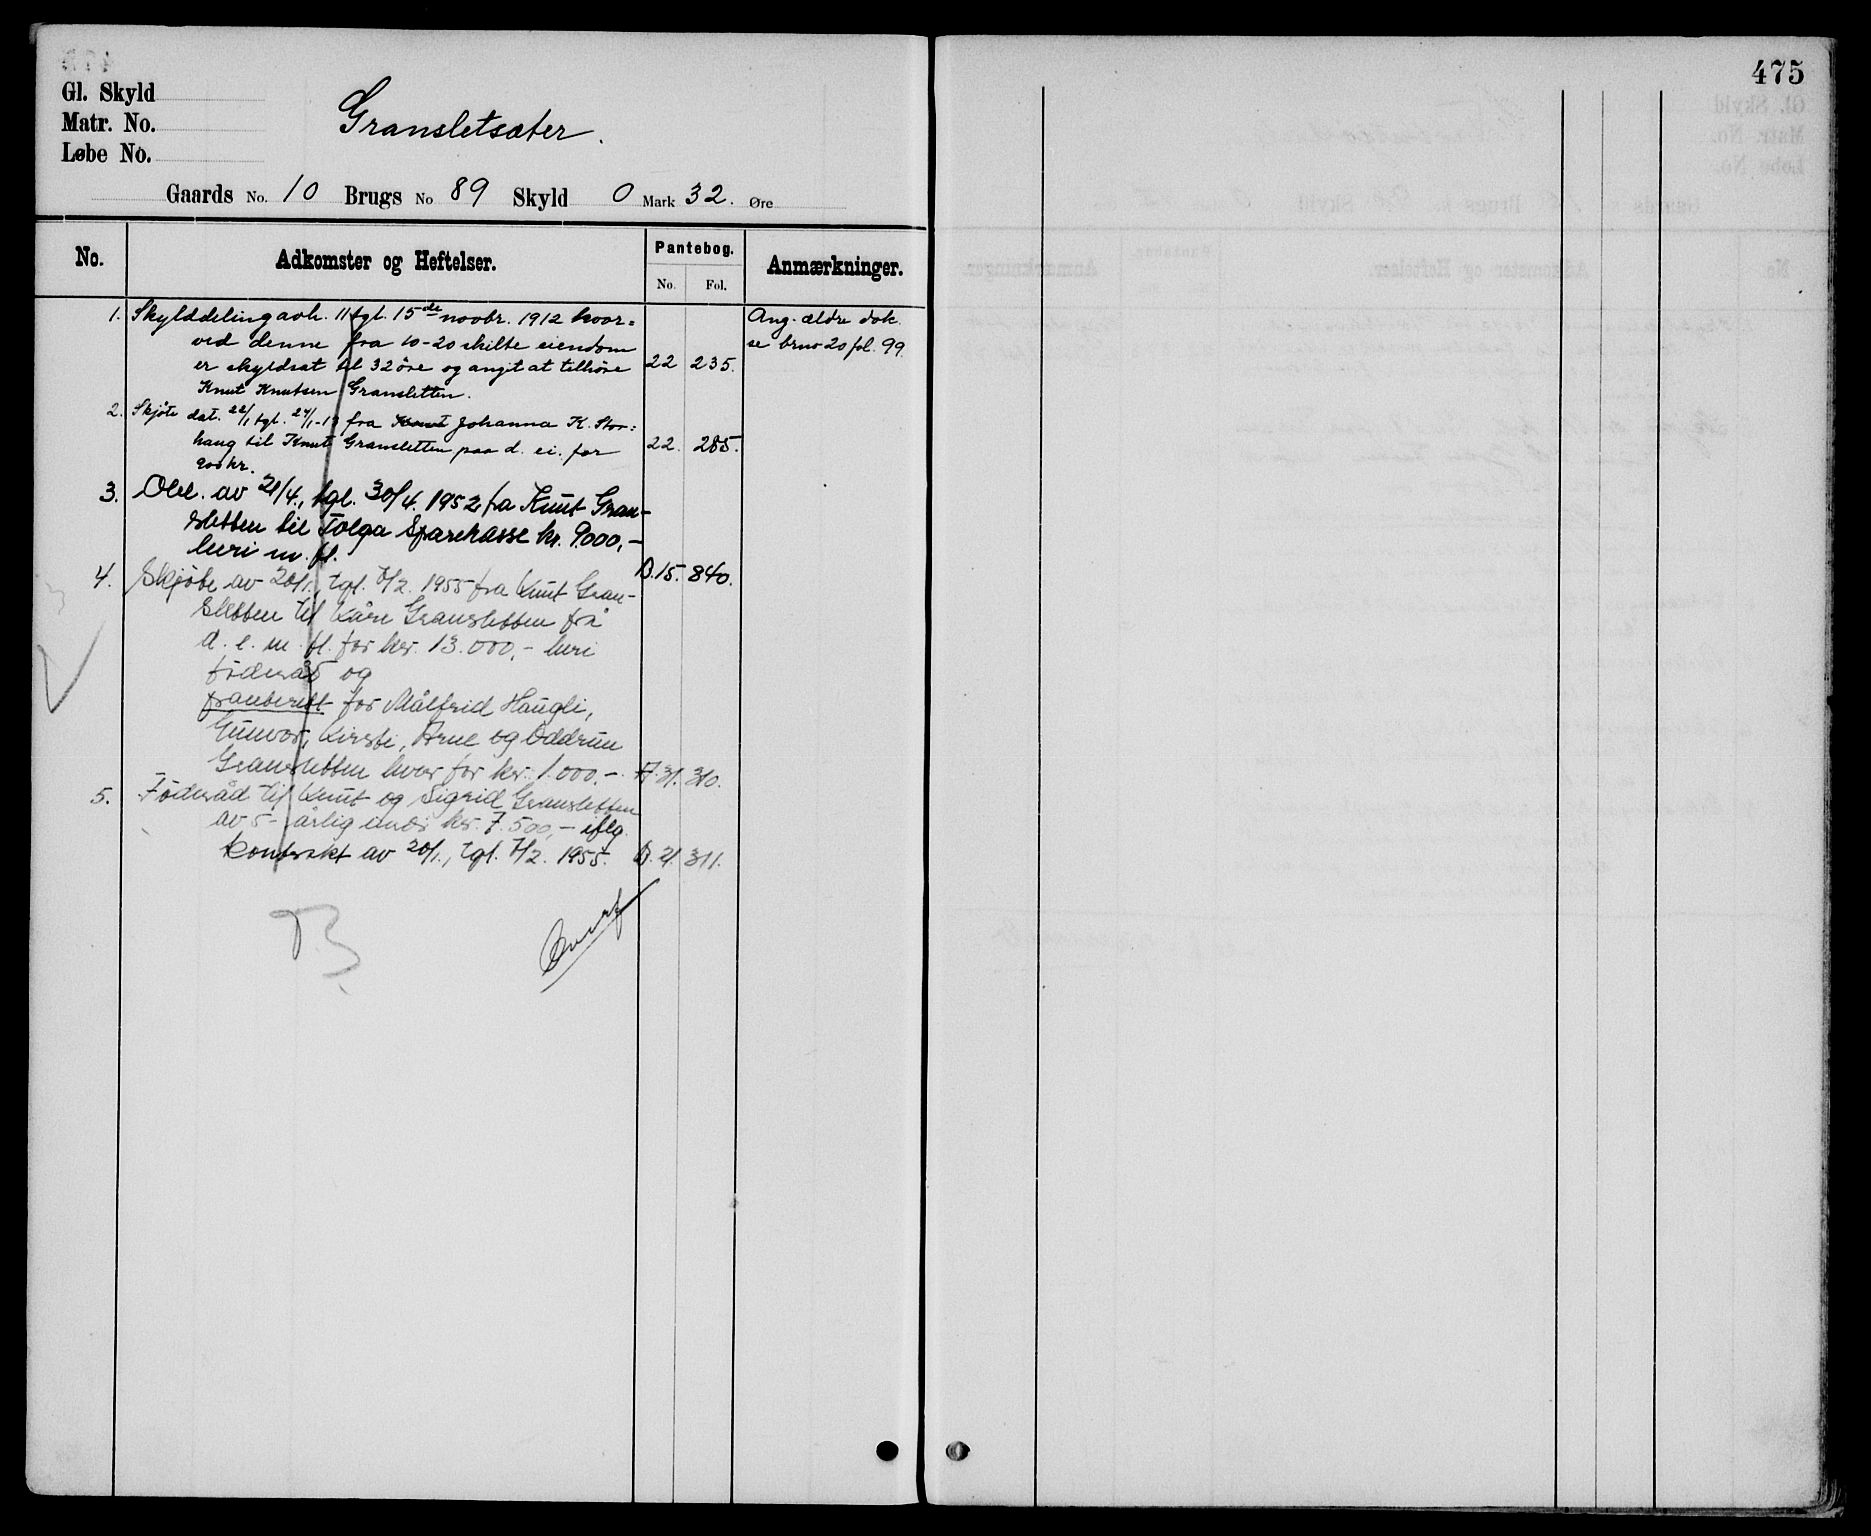 475
Gl. Skyld
Matr. No.
Løbe No.
Gransletsæter.
Gaards No. 10 Brugs No 89 Skyld 0 Mark 32. Øre
No. Adkomster og Heftelser. Pantebog. Anmærkninger.
No. Fol.
1. Skylddeling avh. 11 tgl. 15de novbr. 1912 hvor= Ang. ældre dok.
ved denne fra 10-20 skilte eiendom se brno 20 fol. 99.
er skyldsat til 32 öre og angit at tilhöre 22 235.
Knut Knutsen Gransletten.
2. Skjöte dat. 22/1, tgl. 24/1-13 fra Knut Johanna K. Stor=
haug til Knut Gransletten paa d. ei. for 22. 285.
900 kr.
3. Obl. av 21/4., tgl. 30/4. 1952 fra Knut Gran-
sletten til Tolga Sparekasse kr. 9.000,-
heri m. fl. B.15. 840.
4. Skjöte av 20/1., tgl. 7/2. 1955 fra Knut Gran-
sletten til Kåre Gransletten frå
d. e. m. fl. for kr. 13.000,- heri
föderåd og
panterett for Målfrid Haugli,
Gunvor, Kirsti, Arne og Oddrun
Gransletten hver for kr. 1.000.- A.31. 310.
5. Föderåd til Knut og Sigrid Gransletten
av 5-årlig verdi kr. 7.500,- iflg.
kontrakt av 20/1., tgl. 7/2. 1955. B.21. 311.